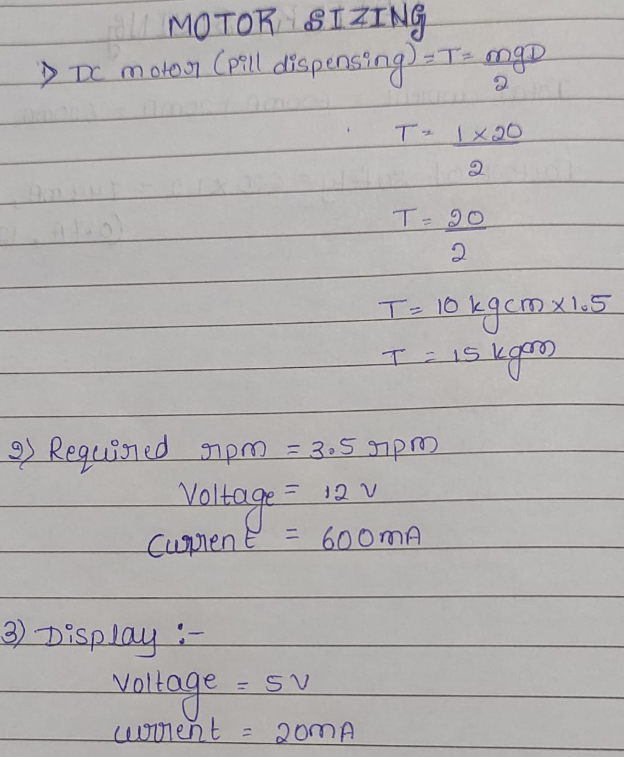 MOTOR SIZING
1) DC motor (pill dispensing) = T = mgD/2
T = 1 x 20/2
T = 20/2
T = 10 kgcm x 1.5
T = 15 kgcm
2) Required rpm = 3.5 rpm
Voltage = 12 V
Current = 600mA
3) Display :-
Voltage = 5V
current = 20mA